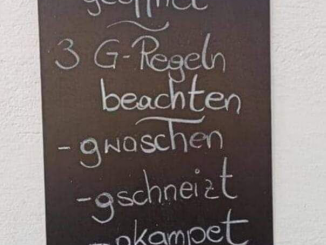 geöffnet
3 G-Regeln
beachten
-gwaschen
-gschneizt
-gkampet